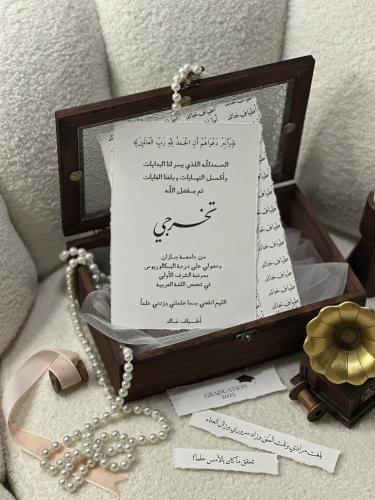 ﴿وَآخِرُ دَعْوَاهُمْ أَنِ الْحَمْدُ لِلَّهِ رَبِّ الْعَالَمِينَ﴾
الحمدلله اللذي يسر لنا البدايات
وأكمل النهايات وبلغنا الغايات
تم بفضل الله
تخرجي
من جامعة جازان
وحصولي على درجة البكالوريوس
بمرتبة الشرف الأولى
في تخصص اللغة العربية
اللهم انفعني بما علمتني وزدني علماً
أطياف خالد
GRADUATION
2025
بلغت مرادي ونلت المنى وزاد سروري وزال العناء
تحقق ماكان بالأمس حلماً!